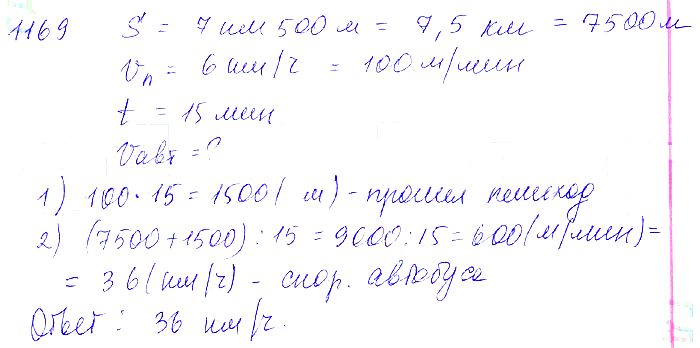 1169 S = 7 км 500 м = 7,5 км = 7500 м
vп = 6 км/ч = 100 м/мин
t = 15 мин
vавт = ?
1) 100 · 15 = 1500 (м) - прошел пешеход
2) (7500 + 1500) : 15 = 9000 : 15 = 600 (м/мин) =
= 36 (км/ч) - скор. автобуса
Ответ: 36 км/ч.